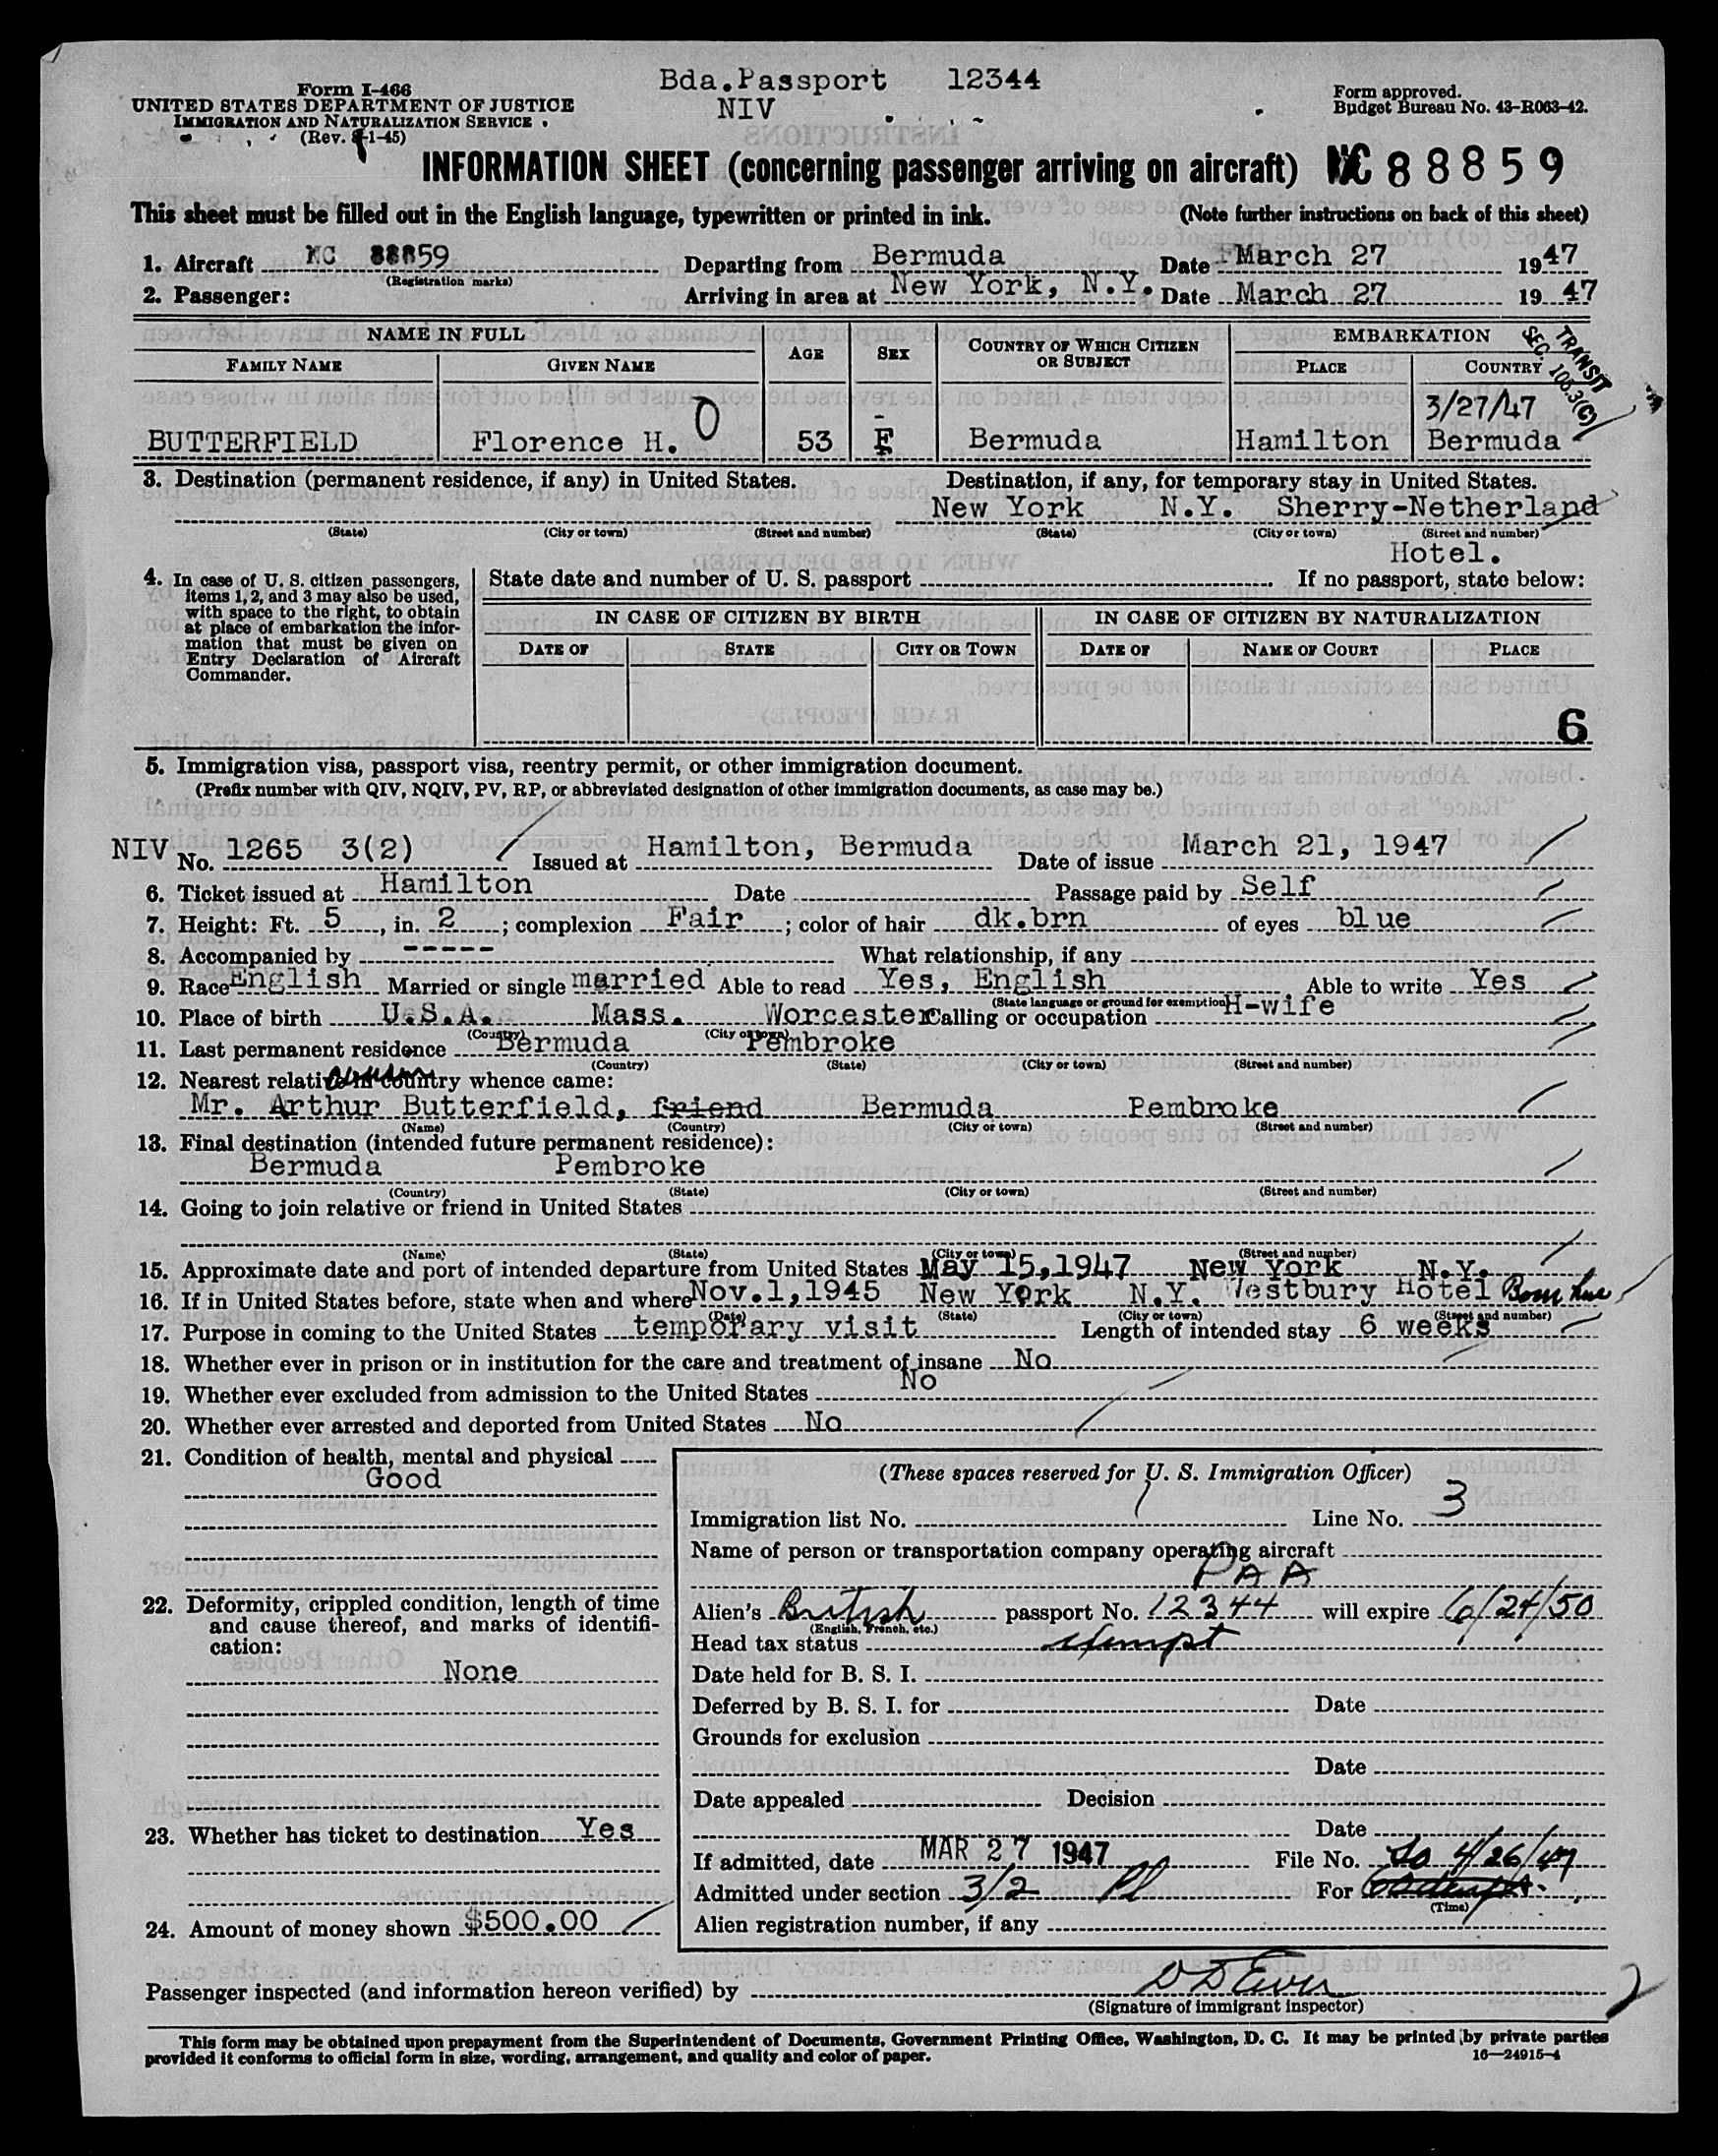 Bda.Passport 12344
NIV
Form I-466
UNITED STATES DEPARTMENT OF JUSTICE
IMMIGRATION AND NATURALIZATION SERVICE
(Rev. -1-45)
Form approved.
Budget Bureau No. 43-R063-42.
INFORMATION SHEET (concerning passenger arriving on aircraft) NC 88859
This sheet must be filled out in the English language, typewritten or printed in ink. (Note further instructions on back of this sheet)
1. Aircraft NC 88859 Departing from Bermuda Date March 27 1947
(Registration marks)
2. Passenger: Arriving in area at New York, N.Y. Date March 27 1947
NAME IN FULL AGE SEX COUNTRY OF WHICH CITIZEN OR SUBJECT EMBARKATION
FAMILY NAME GIVEN NAME PLACE COUNTRY
TRANSIT
SEC. 103.3(C)
3/27/47
BUTTERFIELD Florence H. O 53 F Bermuda Hamilton Bermuda
3. Destination (permanent residence, if any) in United States. Destination, if any, for temporary stay in United States.
New York N.Y. Sherry-Netherland
(State) (City or town) (Street and number) (State) (City or town) (Street and number)
Hotel.
4. In case of U. S. citizen passengers, items 1, 2, and 3 may also be used, with space to the right, to obtain at place of embarkation the information that must be given on Entry Declaration of Aircraft Commander.
State date and number of U. S. passport If no passport, state below:
IN CASE OF CITIZEN BY BIRTH IN CASE OF CITIZEN BY NATURALIZATION
DATE OF STATE CITY OR TOWN DATE OF NAME OF COURT PLACE
6
5. Immigration visa, passport visa, reentry permit, or other immigration document.
(Prefix number with QIV, NQIV, PV, RP, or abbreviated designation of other immigration documents, as case may be.)
NIV No. 1265 3(2) Issued at Hamilton, Bermuda Date of issue March 21, 1947
6. Ticket issued at Hamilton Date Passage paid by Self
7. Height: Ft. 5, in. 2; complexion Fair; color of hair dk.brn of eyes blue
8. Accompanied by ----- What relationship, if any
9. Race English Married or single married Able to read Yes, English Able to write Yes
(State language or ground for exemption)
10. Place of birth U.S.A. Mass. Worcester Calling or occupation H-wife
(Country) (City or town)
11. Last permanent residence Bermuda Pembroke
(Country) (State) (City or town) (Street and number)
12. Nearest relative in country whence came:
Mr. Arthur Butterfield, friend Bermuda Pembroke
(Name) (Country) (City or town) (Street and number)
13. Final destination (intended future permanent residence):
Bermuda Pembroke
(Country) (State) (City or town) (Street and number)
14. Going to join relative or friend in United States
(Name) (State) (City or town) (Street and number)
15. Approximate date and port of intended departure from United States May 15, 1947 New York N.Y.
16. If in United States before, state when and where Nov.1,1945 New York N.Y. Westbury Hotel Born here
(Date) (State) (City or town) (Street and number)
17. Purpose in coming to the United States temporary visit Length of intended stay 6 weeks
18. Whether ever in prison or in institution for the care and treatment of insane No
19. Whether ever excluded from admission to the United States No
20. Whether ever arrested and deported from United States No
21. Condition of health, mental and physical
Good
22. Deformity, crippled condition, length of time and cause thereof, and marks of identification:
None
23. Whether has ticket to destination Yes
24. Amount of money shown $500.00
(These spaces reserved for U. S. Immigration Officer)
Immigration list No. Line No. 3
Name of person or transportation company operating aircraft
PAA
Alien's British passport No. 12344 will expire 6/24/50
(English, French, etc.)
Head tax status exempt
Date held for B. S. I.
Deferred by B. S. I. for Date
Grounds for exclusion
Date
Date appealed Decision
Date
If admitted, date MAR 27 1947 File No. to 4/26/47
Admitted under section 3/2 Pl For
(Time)
Alien registration number, if any
Passenger inspected (and information hereon verified) by
(Signature of immigrant inspector)
2
This form may be obtained upon prepayment from the Superintendent of Documents, Government Printing Office, Washington, D. C. It may be printed by private parties
provided it conforms to official form in size, wording, arrangement, and quality and color of paper. 16—24915-4